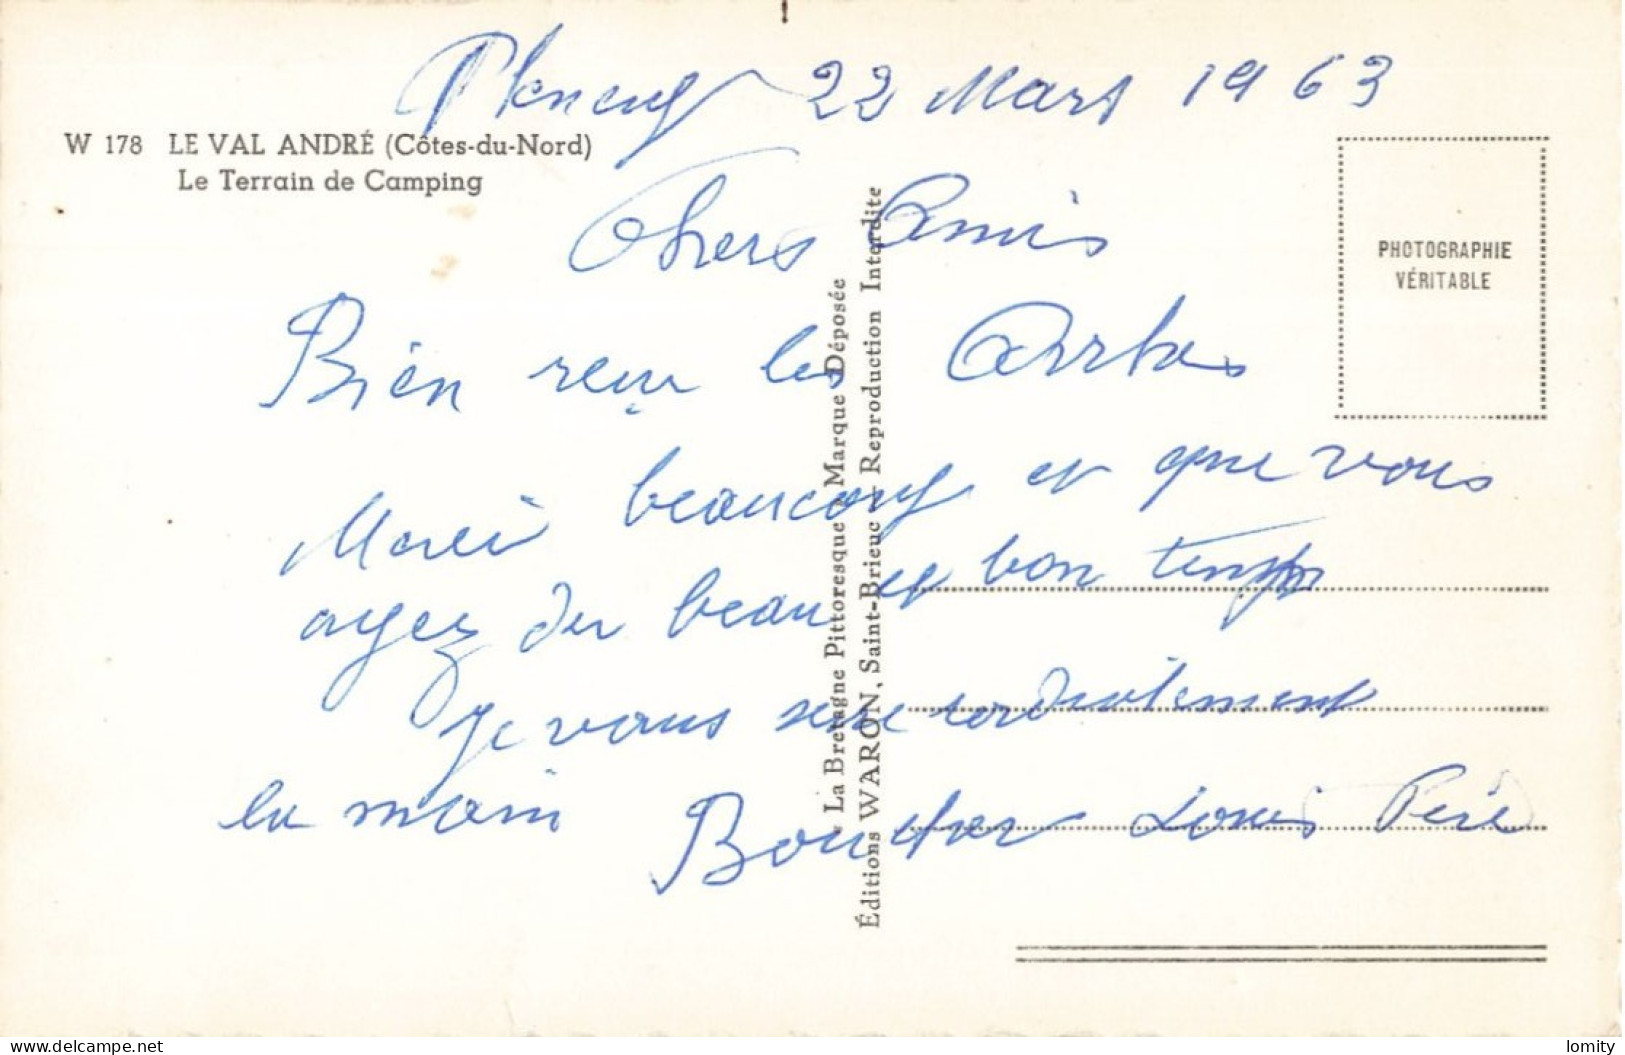 Pleneuf 22 Mars 1963
W 178 LE VAL ANDRÉ (Côtes-du-Nord)
Le Terrain de Camping
Chers Amis
Bien reçu les Cartes
Merci beaucoup et que vous
ayez du beau et bon temps
je vous serre cordialement
la main Louis Père
« La Bretagne Pittoresque » Marque Déposée
Éditions WARON, Saint-Brieuc – Reproduction Interdite
PHOTOGRAPHIE
VÉRITABLE
delcampe.net
lomity